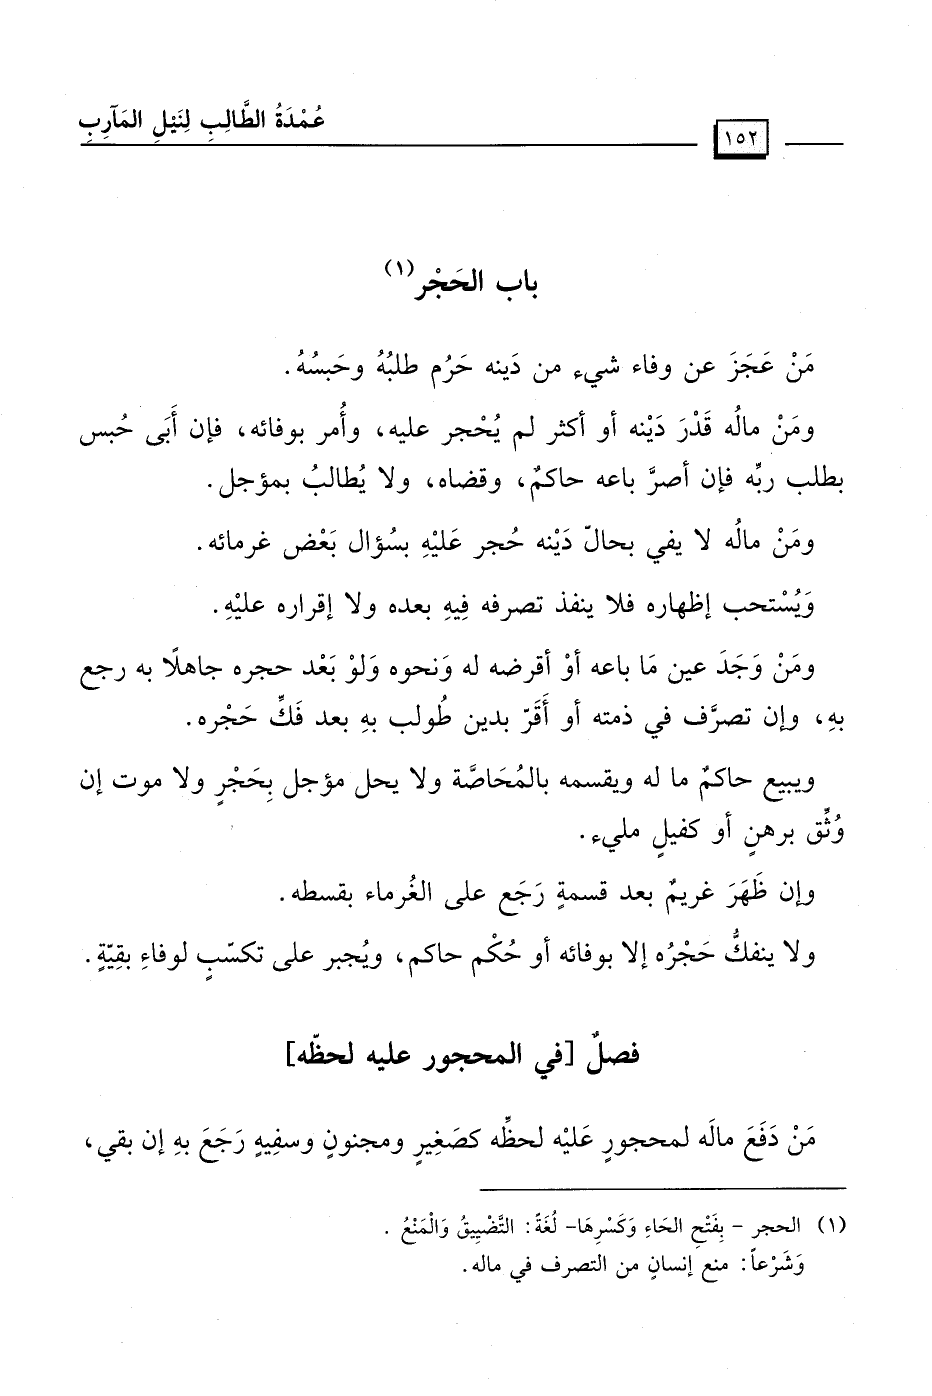 عُمْدَةُ الطَّالِبِ لِنَيْلِ المَآرِبِ
١٥٢
باب الحَجْر(١)
مَنْ عَجَزَ عن وفاء شيء من دَينه حَرُم طلبُهُ وحَبسُهُ.
ومَنْ مالُه قَدْرَ دَيْنه أو أكثر لم يُحْجر عليه، وأُمر بوفائه، فإن أَبَى حُبس
بطلب ربِّه فإن أصرَّ باعه حاكمٌ، وقضاه، ولا يُطالبُ بمؤجل.
ومَنْ مالُه لا يفي بحالّ دَيْنه حُجر عَلَيْهِ بسُؤال بَعْض غرمائه.
وَيُسْتحب إظهاره فلا ينفذ تصرفه فِيهِ بعده ولا إقراره عليْهِ.
ومَنْ وَجَدَ عين مَا باعه أوْ أقرضه له وَنحوه وَلوْ بَعْد حجره جاهلًا به رجع
بهِ، وإن تصرَّف في ذمته أو أَقَرّ بدين طُولب بهِ بعد فَكِّ حَجْره.
ويبيع حاكمٌ ما له ويقسمه بالمُحَاصَّة ولا يحل مؤجل بِحَجْرٍ ولا موت إن
وُثِّق برهنٍ أو كفيلٍ مليء.
وإن ظَهَرَ غريمٌ بعد قسمةٍ رَجَع على الغُرماء بقسطه.
ولا ينفكُّ حَجْرُه إلا بوفائه أو حُكْم حاكم، ويُجبر على تكسّبٍ لوفاءِ بقِيّةٍ.
فصلٌ [في المحجور عليه لحظّه]
مَنْ دَفَعَ مالَه لمحجورٍ عَليْه لحظِّه كصَغِيرٍ ومجنونٍ وسفِيهٍ رَجَعَ بهِ إن بقي،
(١) الحجر - بِفَتْحِ الحَاءِ وَكَسْرِهَا- لُغَةً: التَّضْيِيقُ وَالْمَنْعُ.
وَشَرْعاً: منع إنسانٍ من التصرف في ماله.